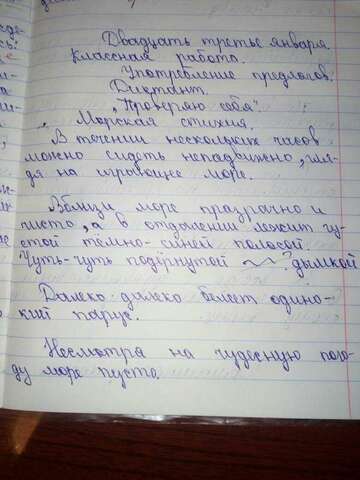 Двадцать третье января.
Классная работа.
Употребление предлогов.
Диктант.
„Проверяю себя".
Морская стихия.
В течении нескольких часов
можно сидеть неподвижено, гля-
дя на играющее море.
Вблизи море празрачно и
чисто, а в отдалении лежит гу-
стой темно-синей полосой.
Чуть-чуть подёрнутой ? дымкой
Далеко-далеко белеет одино-
кий парус.
Несмотра на чудесную пого-
ду море пусто.